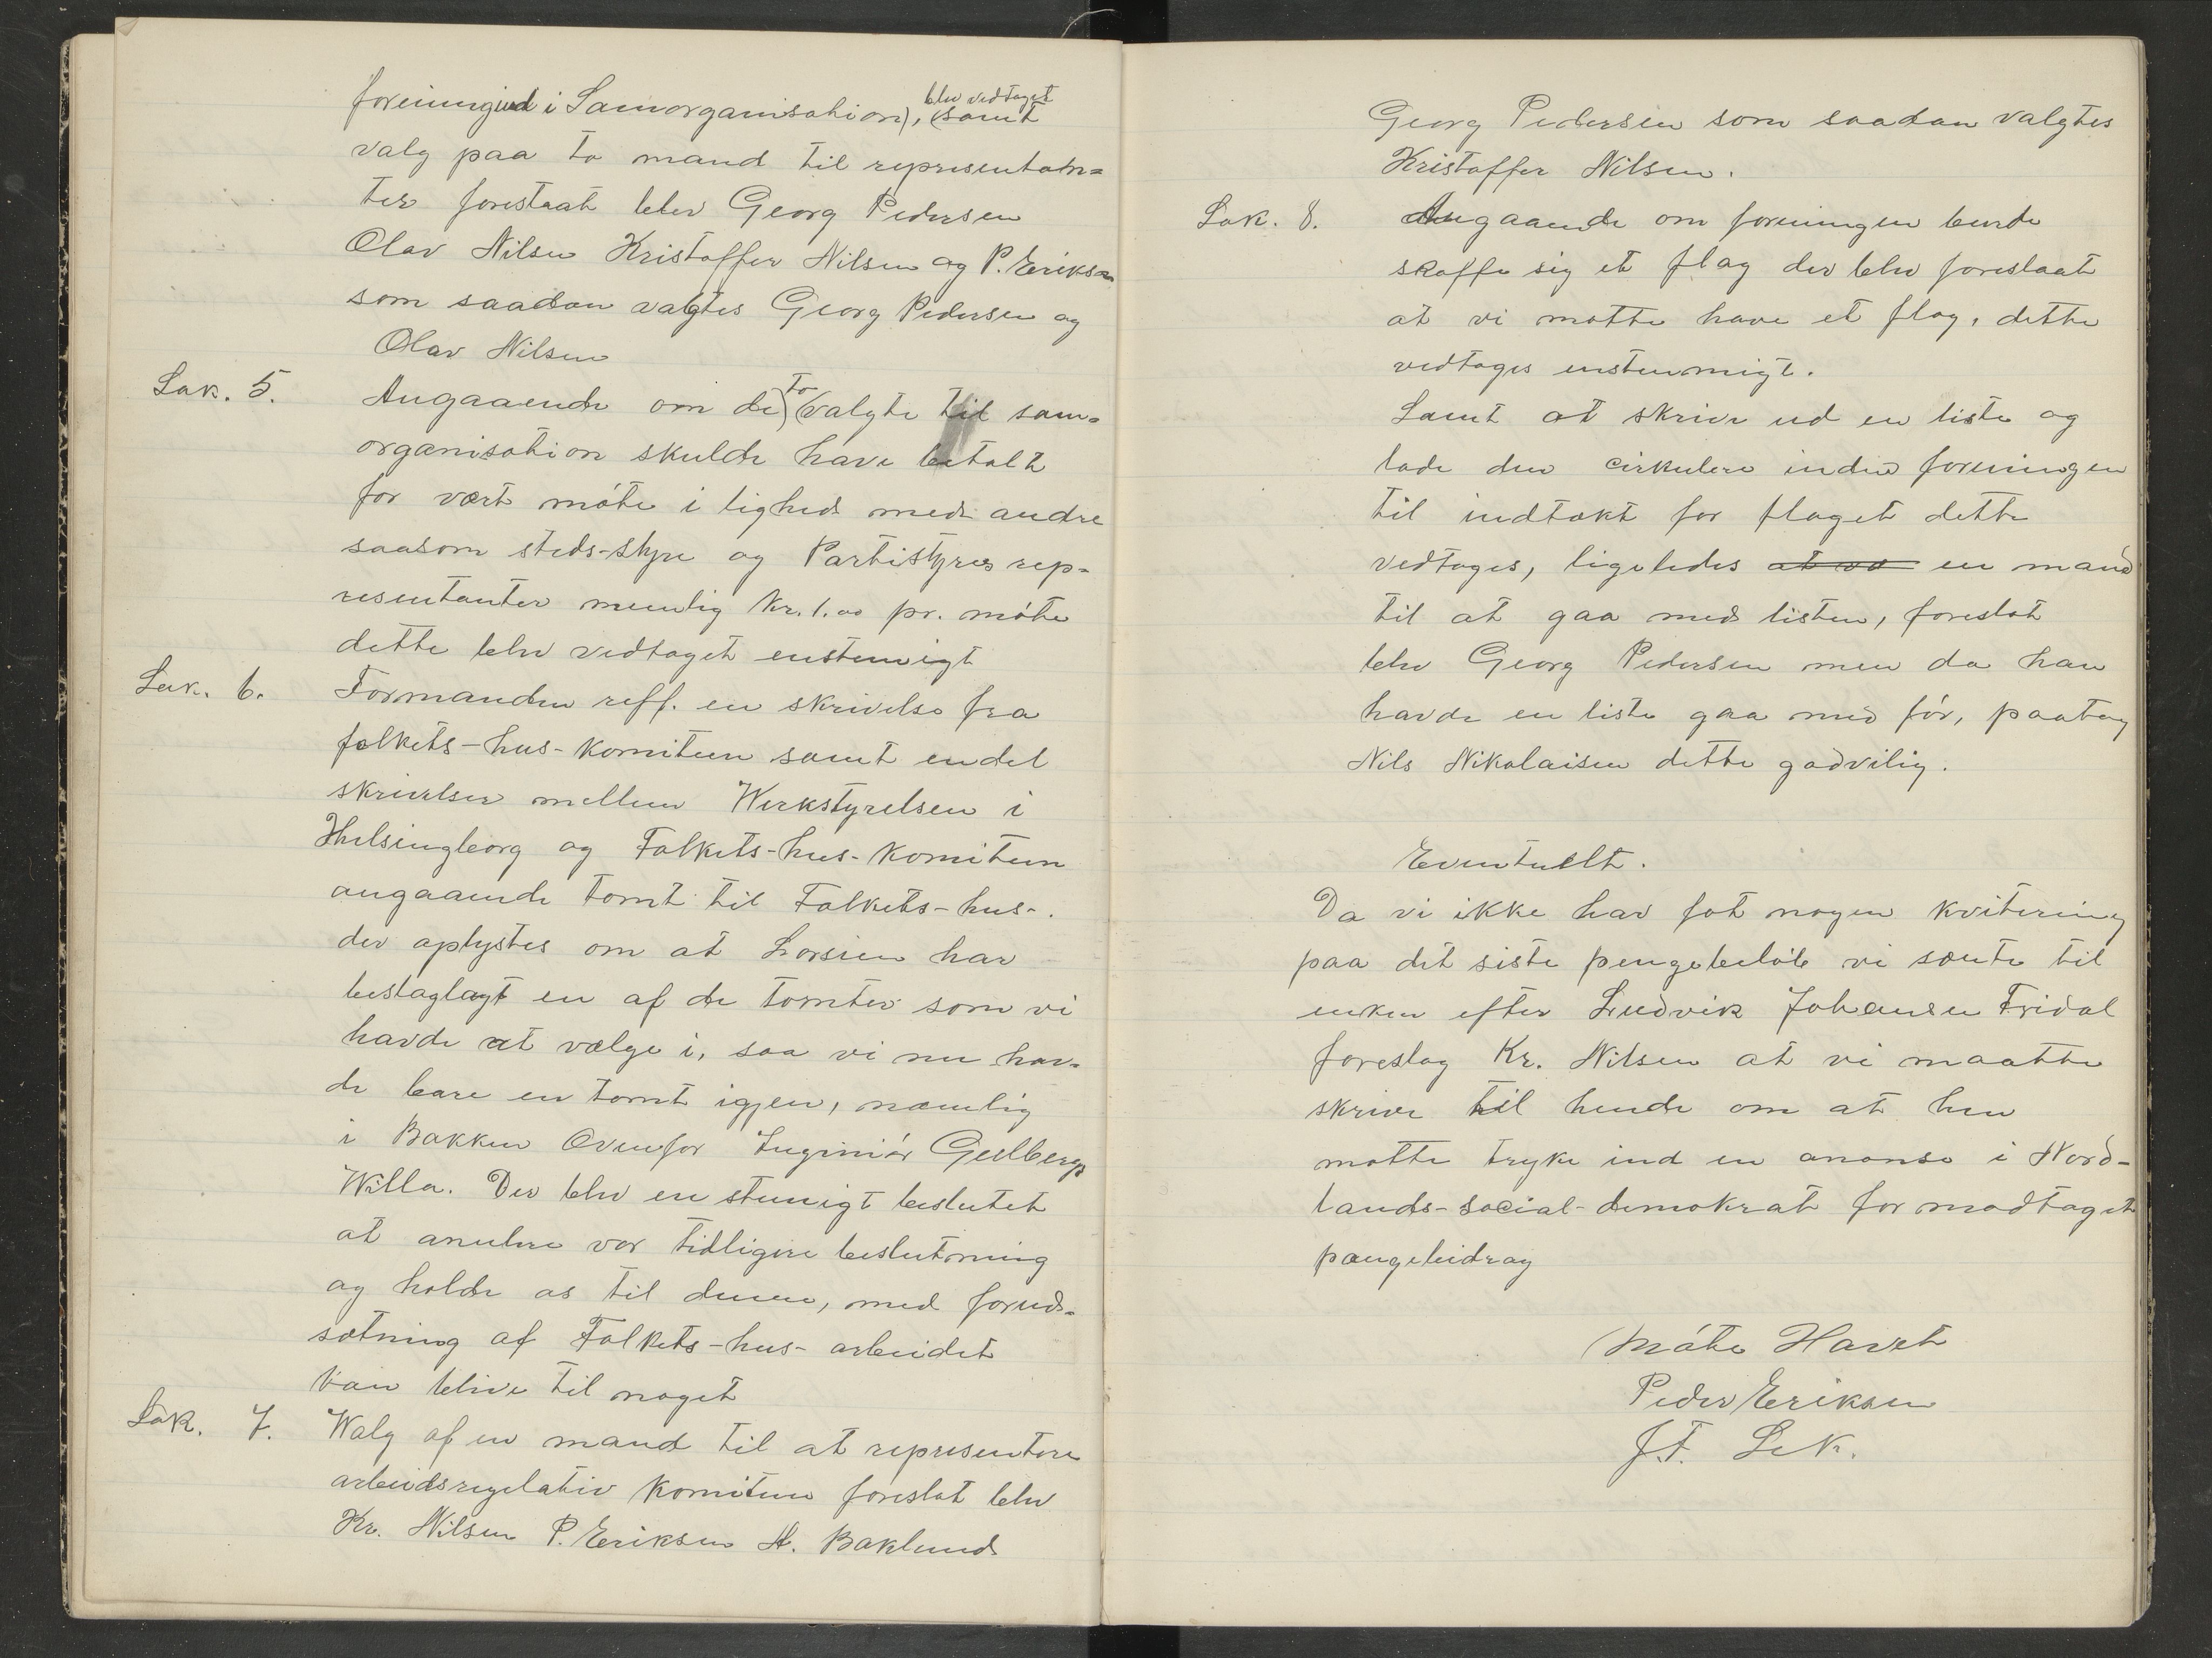 foreningind i Samorganisation), (blev vedtaget samt
valg paa to mand til representan=
ter forestaat blev Georg Pedersen
Olav Nilsen Kristoffer Nilsen og P. Eriksen
som saadan valgtes Georg Pedersen og
Olav Nilsen
Sak. 5. Angaaende om de) to (valgte til sam=
organisation skulde have betalt
for vært möte i lighed med andre
saasom steds-styre og Partistyres rep=
resentanter nemlig Kr. 1.00 pr. möte
dette blev vedtaget enstemigt
Sak. 6. Formanden reff. en skrivelse fra
folkets-hus-komiteen samt endel
skrivelser mellem Werkstyrelsen i
Helsingborg og Folkets-hus-komiteen
angaaende tomt til Folkets-hus-.
der oplystes om at Lorsien har
beslaglagt en af de tomter som vi
havde at vælge i, saa vi nu hav=
de bare en tomt igjen, næmlig
i Bakken Ovenfor Inginiör Gulbergs
Willa. Der blev en stemigt beslutet
at anulere vor tidligere beslutning
og holde os til denne, med forud=
sætning af Folkets-hus-arbeidet
kan blive til noget
Sak. 7. Walg af en mand til at representere
arbeidsregelativ komiteen foreslat blev
Kr. Nilsen P. Eriksen H. Baklund
Georg Pedersen som saadan valgtes
Kristoffer Nilsen.
Sak. 8. Angaaende om foreningen burde
skaffe sig et flag der blev foreslaat
at vi matte have et flag, dette
vedtoges enstemmigt.
Samt at skrive ud en liste og
lade den cirkulere inden foreningen
til indtækt for flaget dette
vedtoges, ligeledes at va en mand
til at gaa med listen, foreslat
blev Georg Pedersen men da han
havde en liste gaa med för, paatog
Nils Nikolaisen dette godvilig.
Eventuelt.
Da vi ikke har fot nogen kvitering
paa det siste pengebelöb vi sænte til
enken efter Ludvik Johansen Fridal
foreslog Kr. Nilsen at vi maatte
skrive til hende om at hun
matte tryke ind en anonse i Nord-
lands-social-demokrat for modtaget
pængebidrag
Möte Hævet
Peder Eriksen
f.t. Sek.